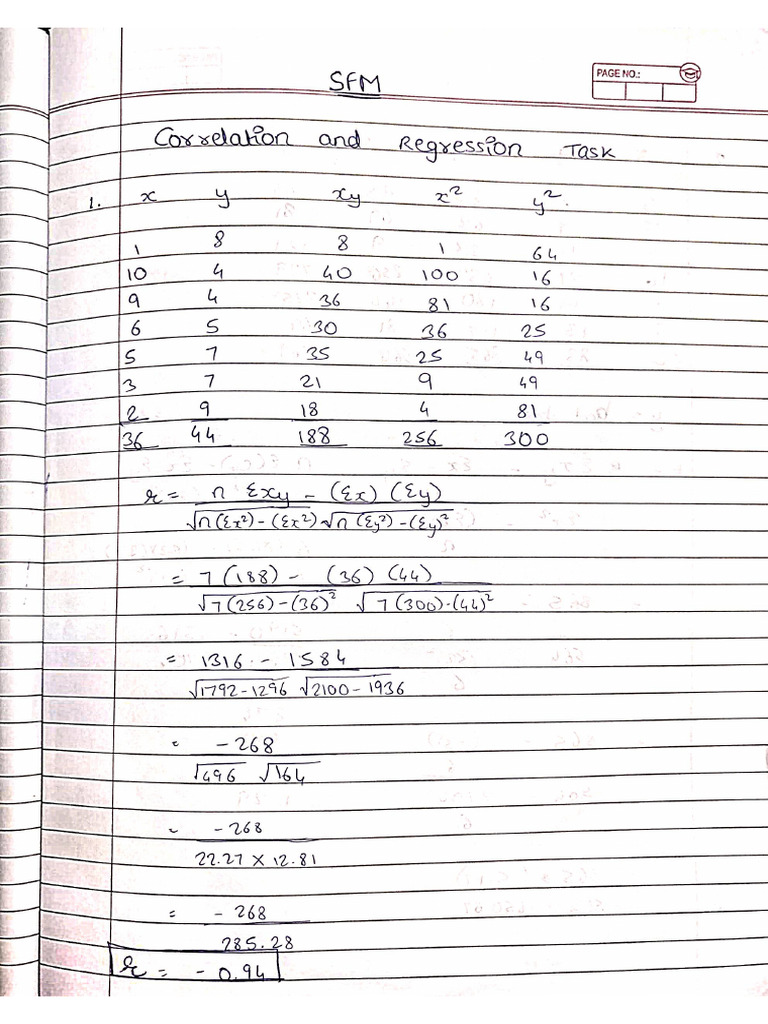 SFM
PAGE NO.:
Correlation and Regression Task
1. x y xy x² y².
1 8 8 1 64
10 4 40 100 16
9 4 36 81 16
6 5 30 36 25
5 7 35 25 49
3 7 21 9 49
2 9 18 4 81
36 44 188 256 300
r = n Σxy - (Σx) (Σy)
√n(Σx²)-(Σx²) √n(Σy²)-(Σy)²
= 7 (188) - (36) (44)
√7(256)-(36)² √7(300)-(44)²
= 1316 - 1584
√1792-1296 √2100-1936
= -268
√496 √164
= -268
22.27 × 12.81
= -268
285.28
r = -0.94